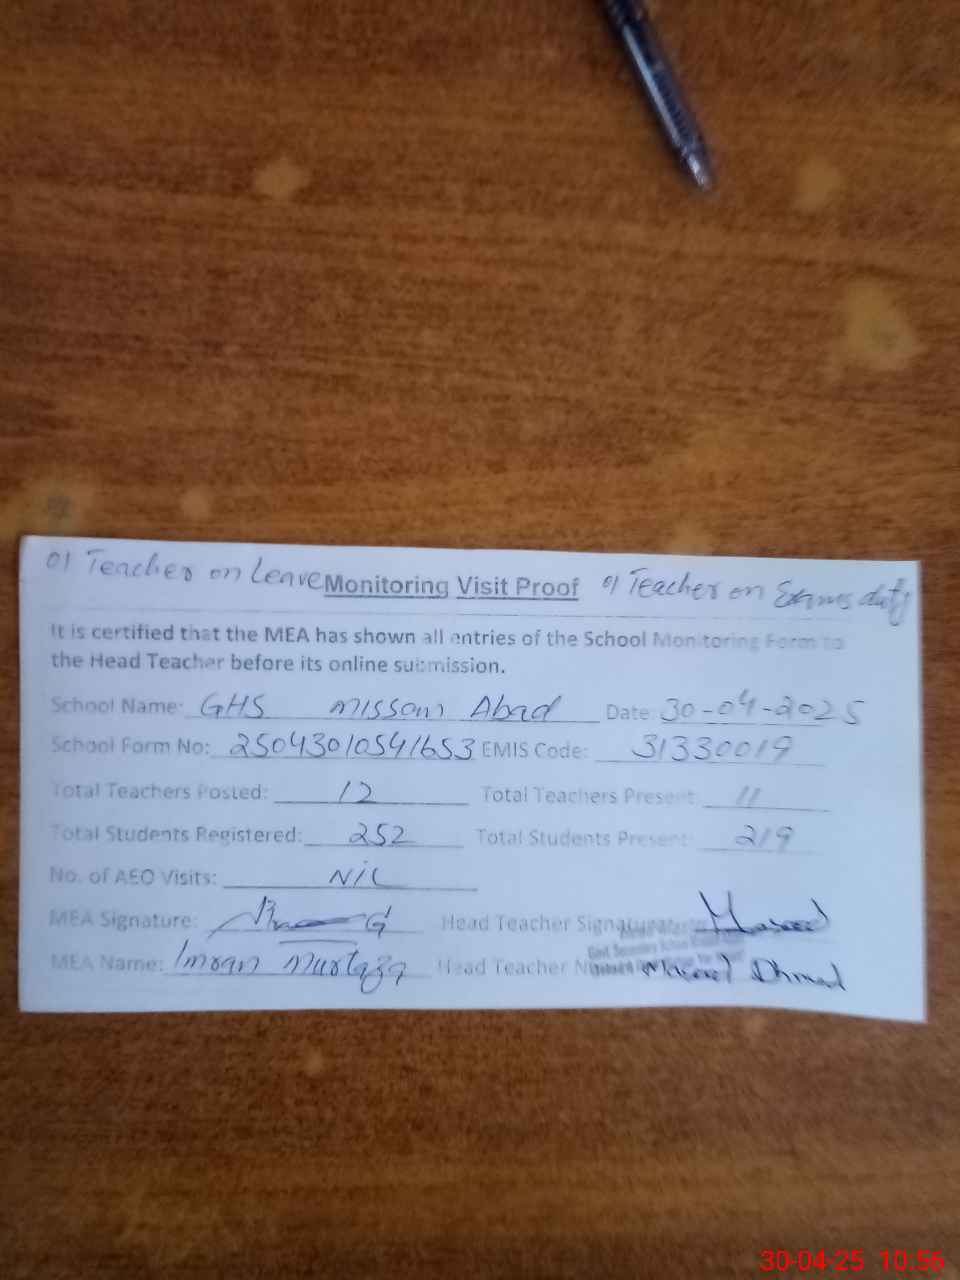 01 Teacher on Leave Monitoring Visit Proof 01 Teacher on Exams duty
It is certified that the MEA has shown all entries of the School Monitoring Form to
the Head Teacher before its online submission.
School Name: GHS Missan Abad Date: 30-04-2025
School Form No: 25043010541653 EMIS Code: 31330019
Total Teachers Posted: 12 Total Teachers Present: 11
Total Students Registered: 252 Total Students Present: 219
No. of AEO Visits: Nil
MEA Signature: Head Teacher Signature: Masood
MEA Name: Imran Murtaza Head Teacher Name: Masood Ahmad
30-04-25 10:56